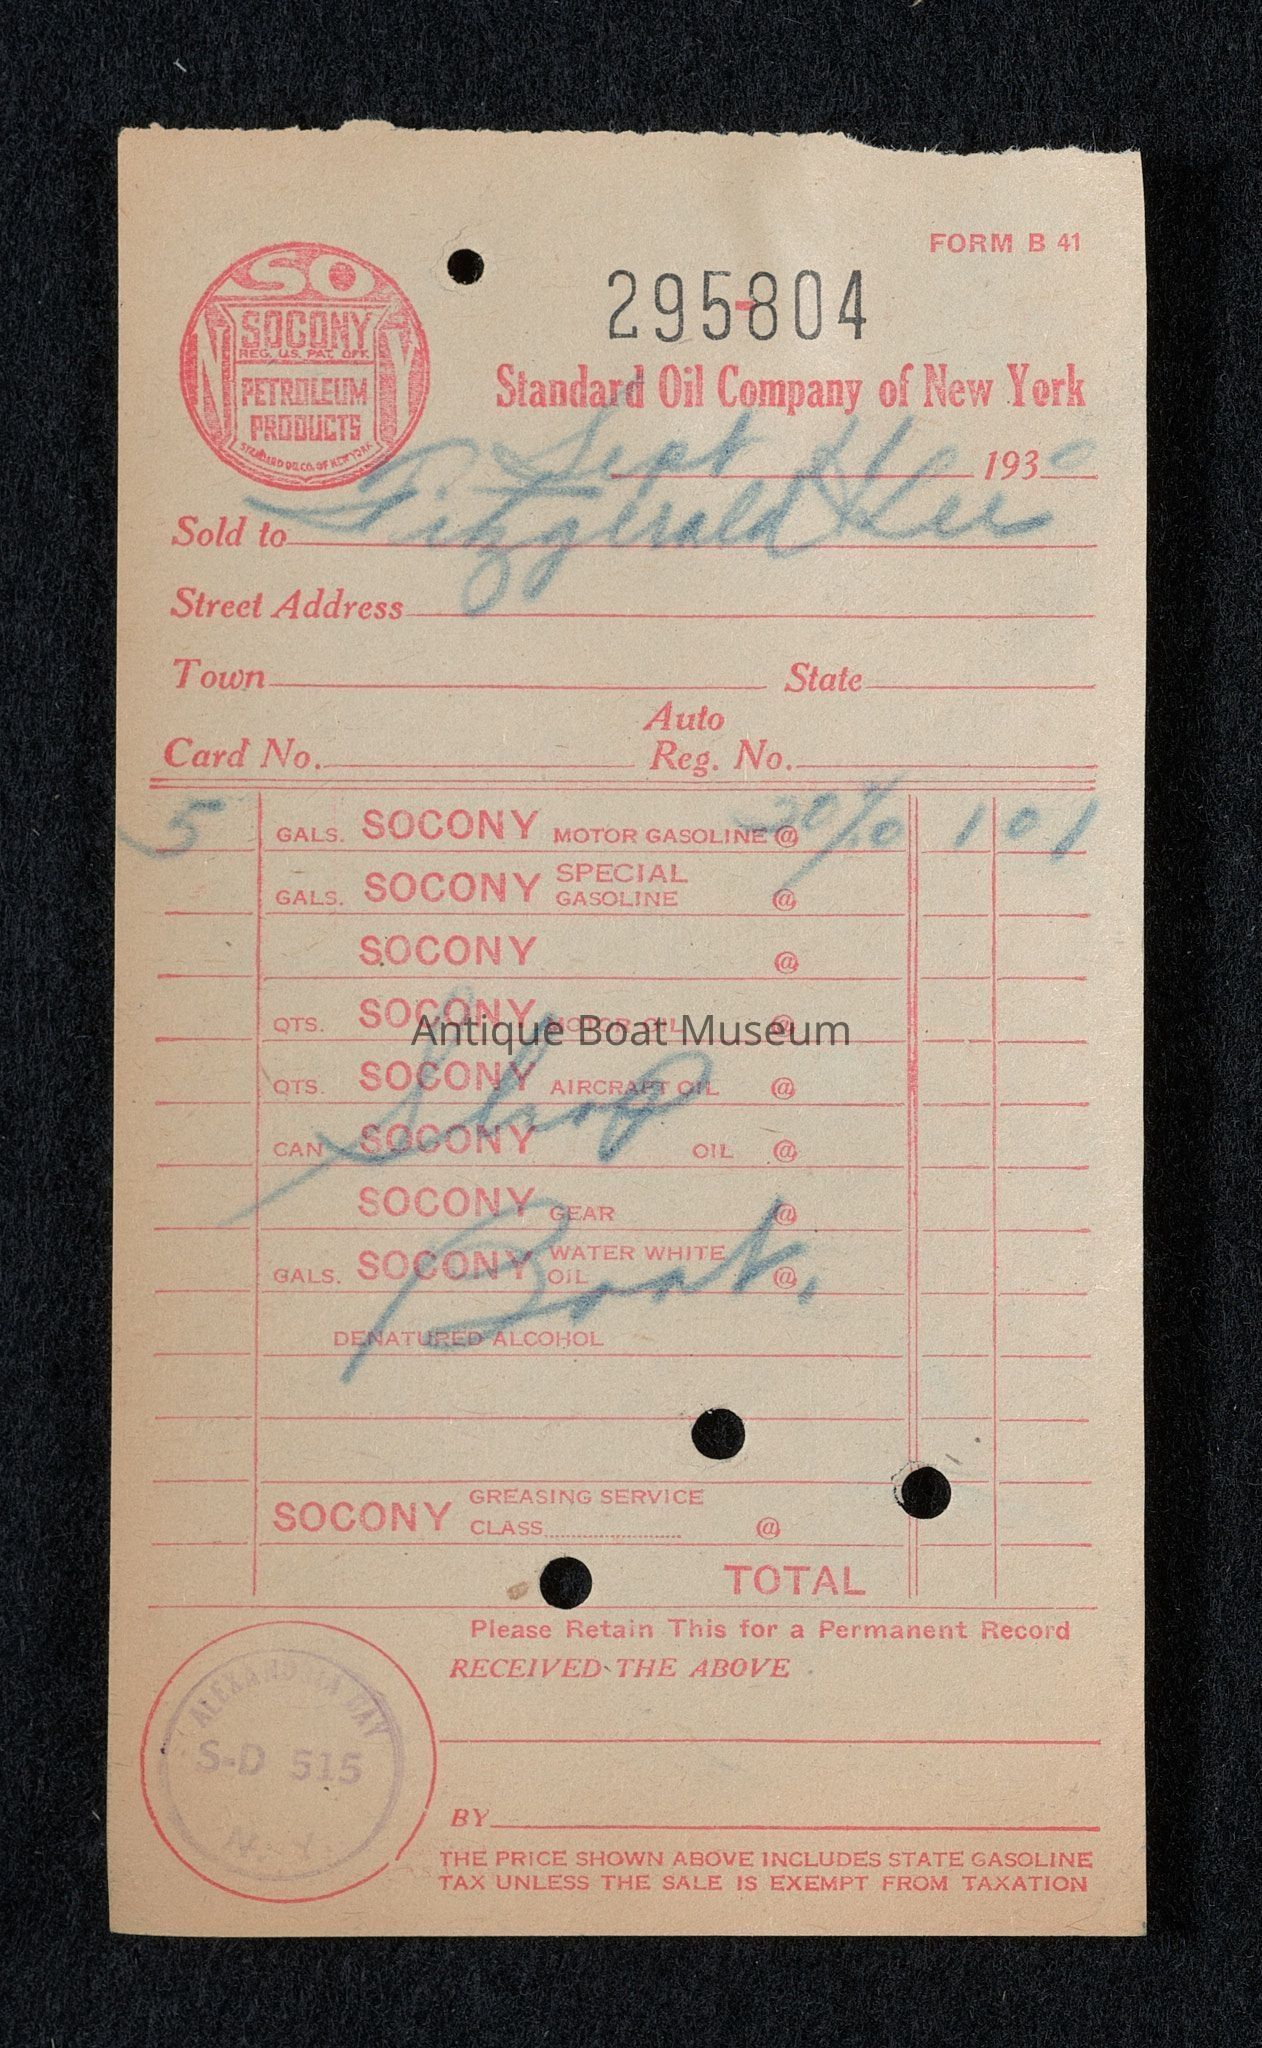 FORM B 41
295804
SO
NY
SOCONY
REG. U.S. PAT. OFF.
PETROLEUM
PRODUCTS
STANDARD OIL CO. OF NEW YORK
Standard Oil Company of New York
Sept 1930
Sold to Fitzgerald & Lee
Street Address
Town State
Card No. Auto Reg. No.
5 GALS. SOCONY MOTOR GASOLINE @ 1 01
GALS. SOCONY SPECIAL GASOLINE @
SOCONY @
QTS. SOCONY MOTOR OIL @
Antique Boat Museum
QTS. SOCONY AIRCRAFT OIL @
Shop
CAN SOCONY OIL @
SOCONY GEAR @
Boat.
GALS. SOCONY WATER WHITE OIL @
DENATURED ALCOHOL
SOCONY GREASING SERVICE
CLASS @
TOTAL
Please Retain This for a Permanent Record
RECEIVED THE ABOVE
ALEXANDRIA BAY
S-D 515
N. Y.
BY
THE PRICE SHOWN ABOVE INCLUDES STATE GASOLINE
TAX UNLESS THE SALE IS EXEMPT FROM TAXATION